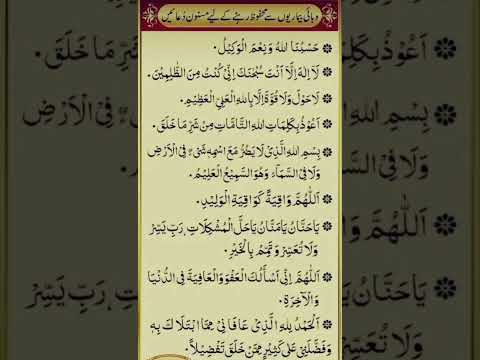 وبائی بیماریوں سے محفوظ رہنے کے لیے مسنون دعائیں
حَسْبُنَا اللهُ وَنِعْمَ الْوَكِيْلُ.
لَآ اِلٰهَ اِلَّآ اَنْتَ سُبْحٰنَكَ اِنِّىْ كُنْتُ مِنَ الظّٰلِمِيْنَ.
لَاحَوْلَ وَلَا قُوَّةَ اِلَّا بِاللهِ الْعَلِىِّ الْعَظِيْمِ.
اَعُوْذُ بِكَلِمَاتِ اللهِ التَّامَّاتِ مِنْ شَرِّ مَا خَلَقَ.
بِسْمِ اللهِ الَّذِىْ لَا يَضُرُّ مَعَ اسْمِهٖ شَىْءٌ فِى الْاَرْضِ
وَلَا فِى السَّمَآءِ وَهُوَ السَّمِيْعُ الْعَلِيْمُ.
اَللّٰهُمَّ وَاقِيَةً كَوَاقِيَةِ الْوَلِيْدِ.
يَاحَنَّانُ يَامَنَّانُ يَاحَلَّ الْمُشْكِلَاتِ، رَبِّ يَسِّرْ
وَلَا تُعَسِّرْ وَتَمِّمْ بِالْخَيْرِ.
اَللّٰهُمَّ اِنِّىْ اَسْأَلُكَ الْعَفْوَ وَالْعَافِيَةَ فِى الدُّنْيَا
وَالْاٰخِرَةِ.
اَلْحَمْدُ لِلهِ الَّذِىْ عَافَانِىْ مِمَّا ابْتَلَاكَ بِهٖ
وَفَضَّلَنِىْ عَلٰى كَثِيْرٍ مِّمَّنْ خَلَقَ تَفْضِيْلًا.